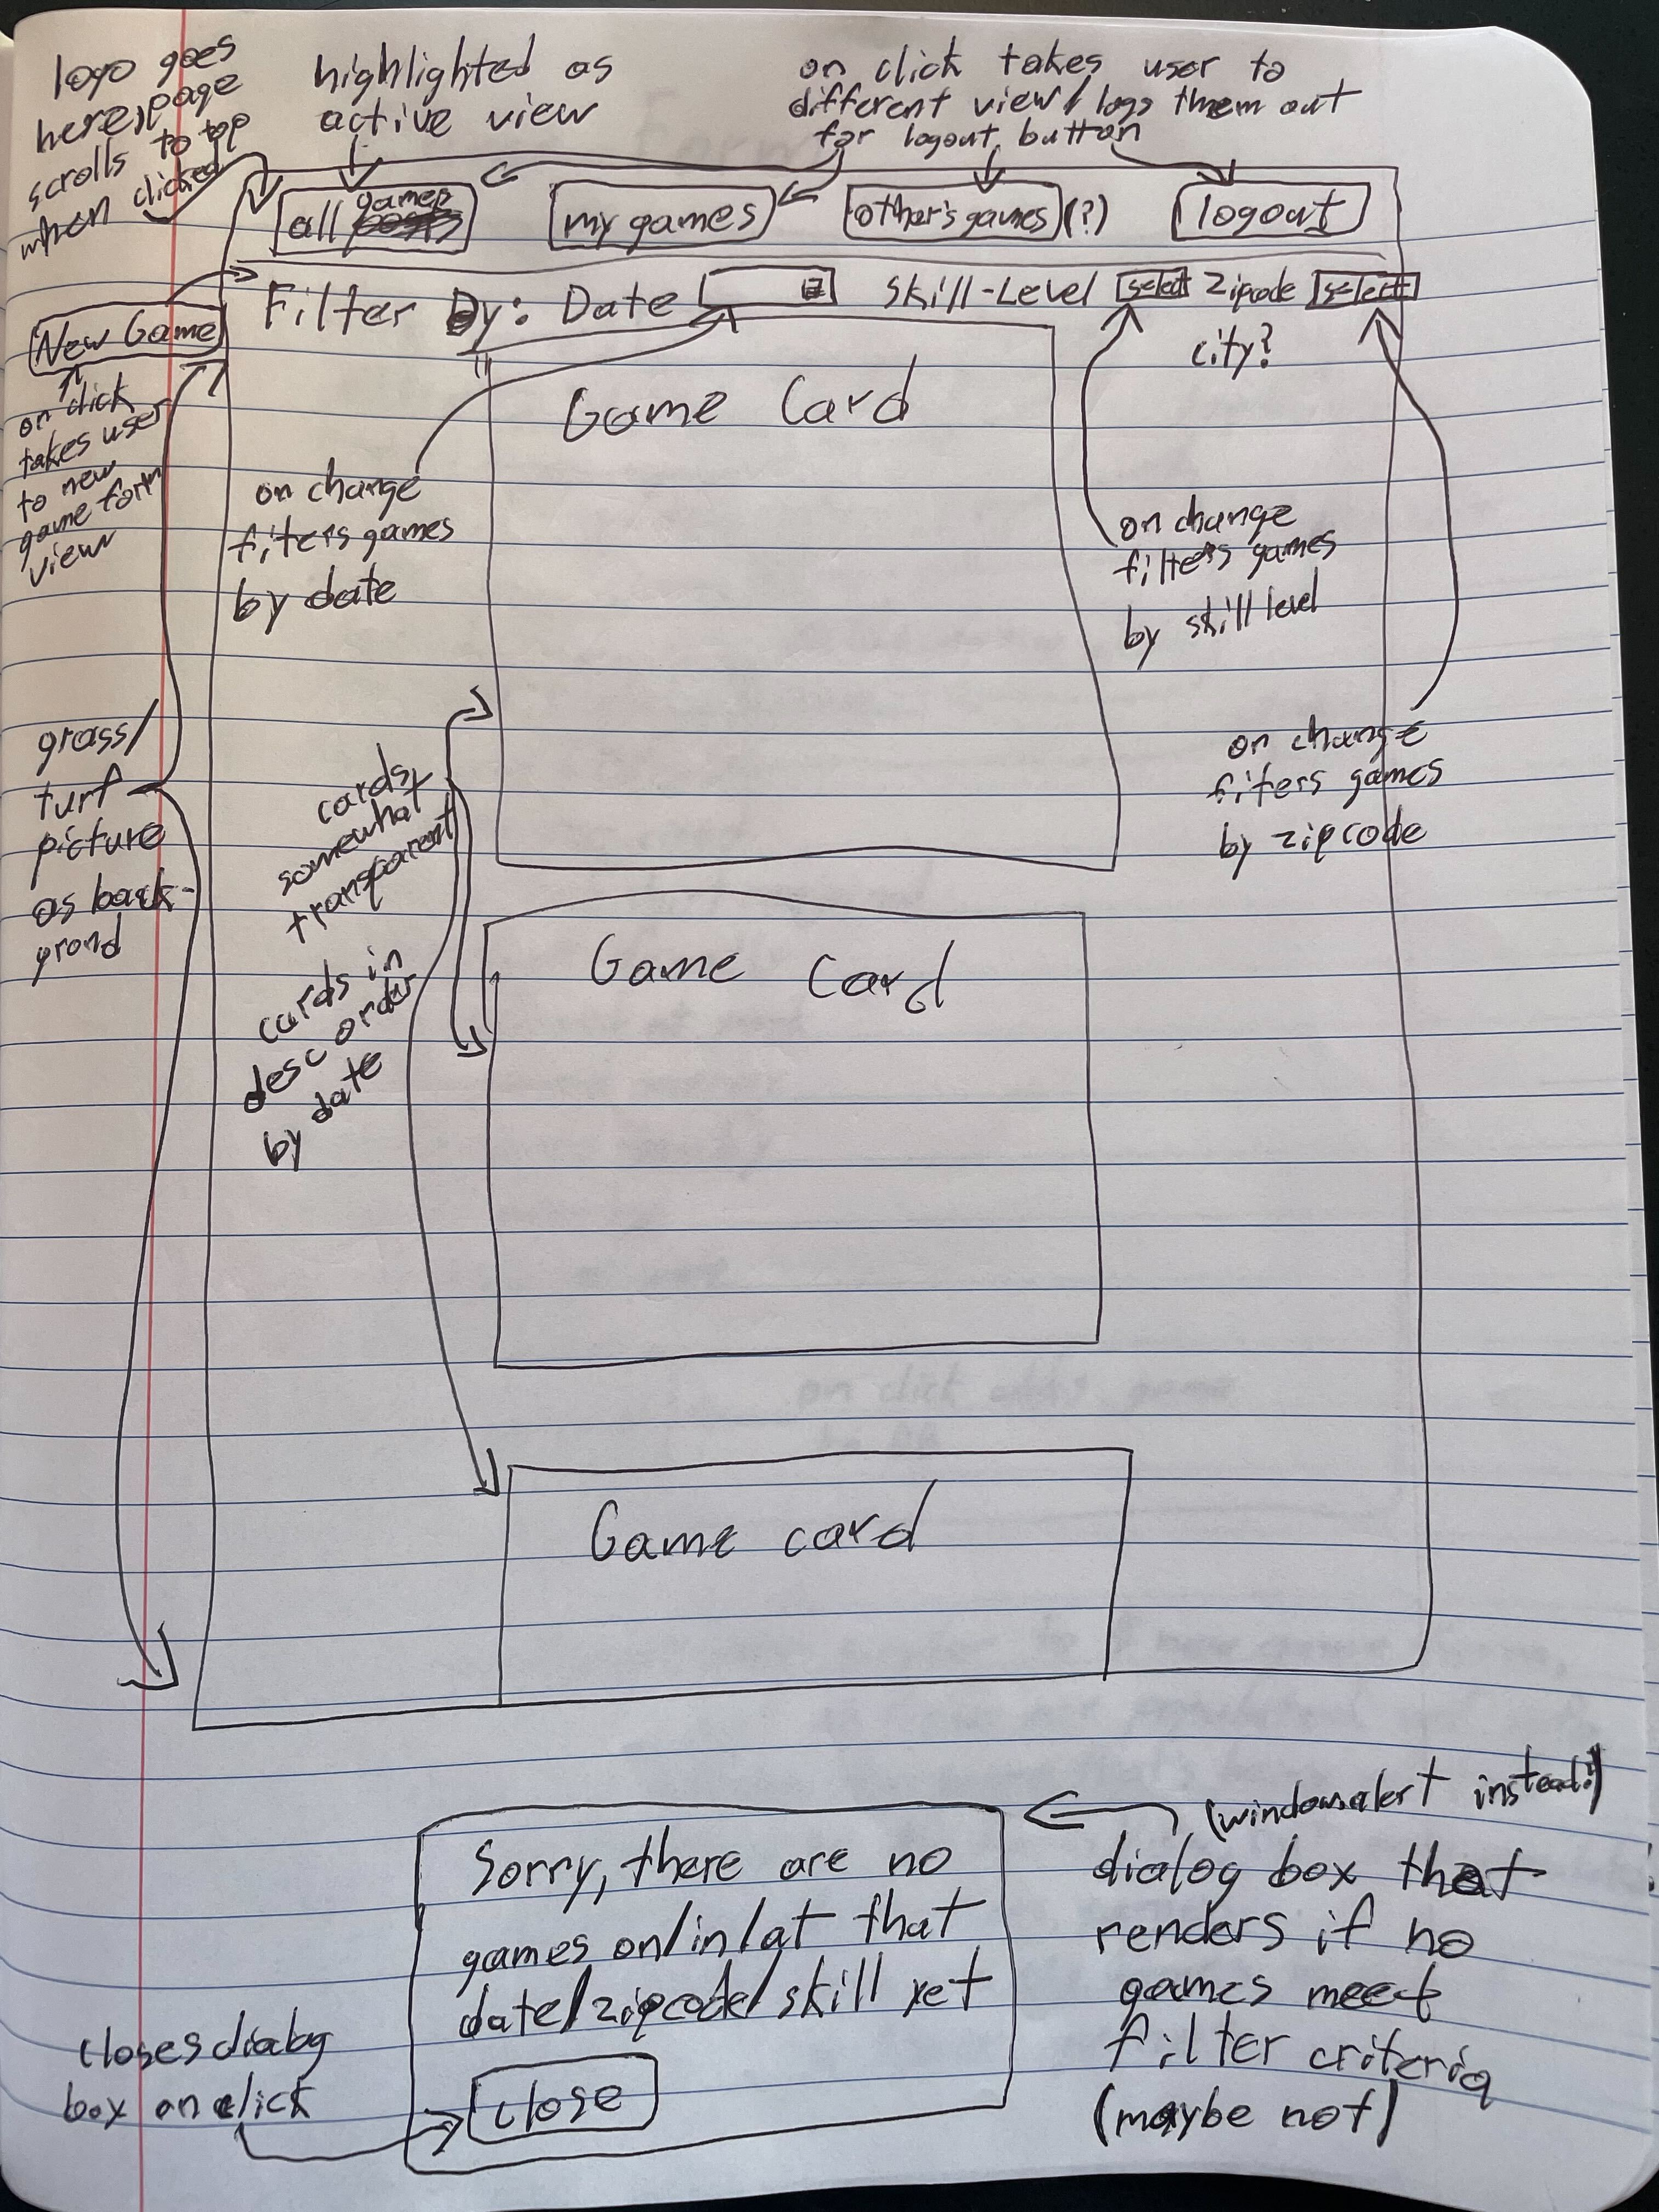 logo goes
here, page
scrolls to top
when clicked
highlighted as
active view
on click takes user to
different view/logs them out
for logout button
all games
my games
other's games (?)
logout
New Game
Filter By: Date
Skill-Level select Zipcode select
city?
on click
takes user
to new
game form
view
Game Card
on change
filters games
by date
on change
filters games
by skill level
on change
filters games
by zipcode
grass/
turf
picture
as back-
grond
cards
somewhat
transparent
cards in
desc order
by date
Game Card
Game card
Sorry, there are no
games on/in/at that
date/zipcode/skill yet
close
closes dialog
box on click
(window.alert instead?)
dialog box that
renders if no
games meet
filter criteria
(maybe not)